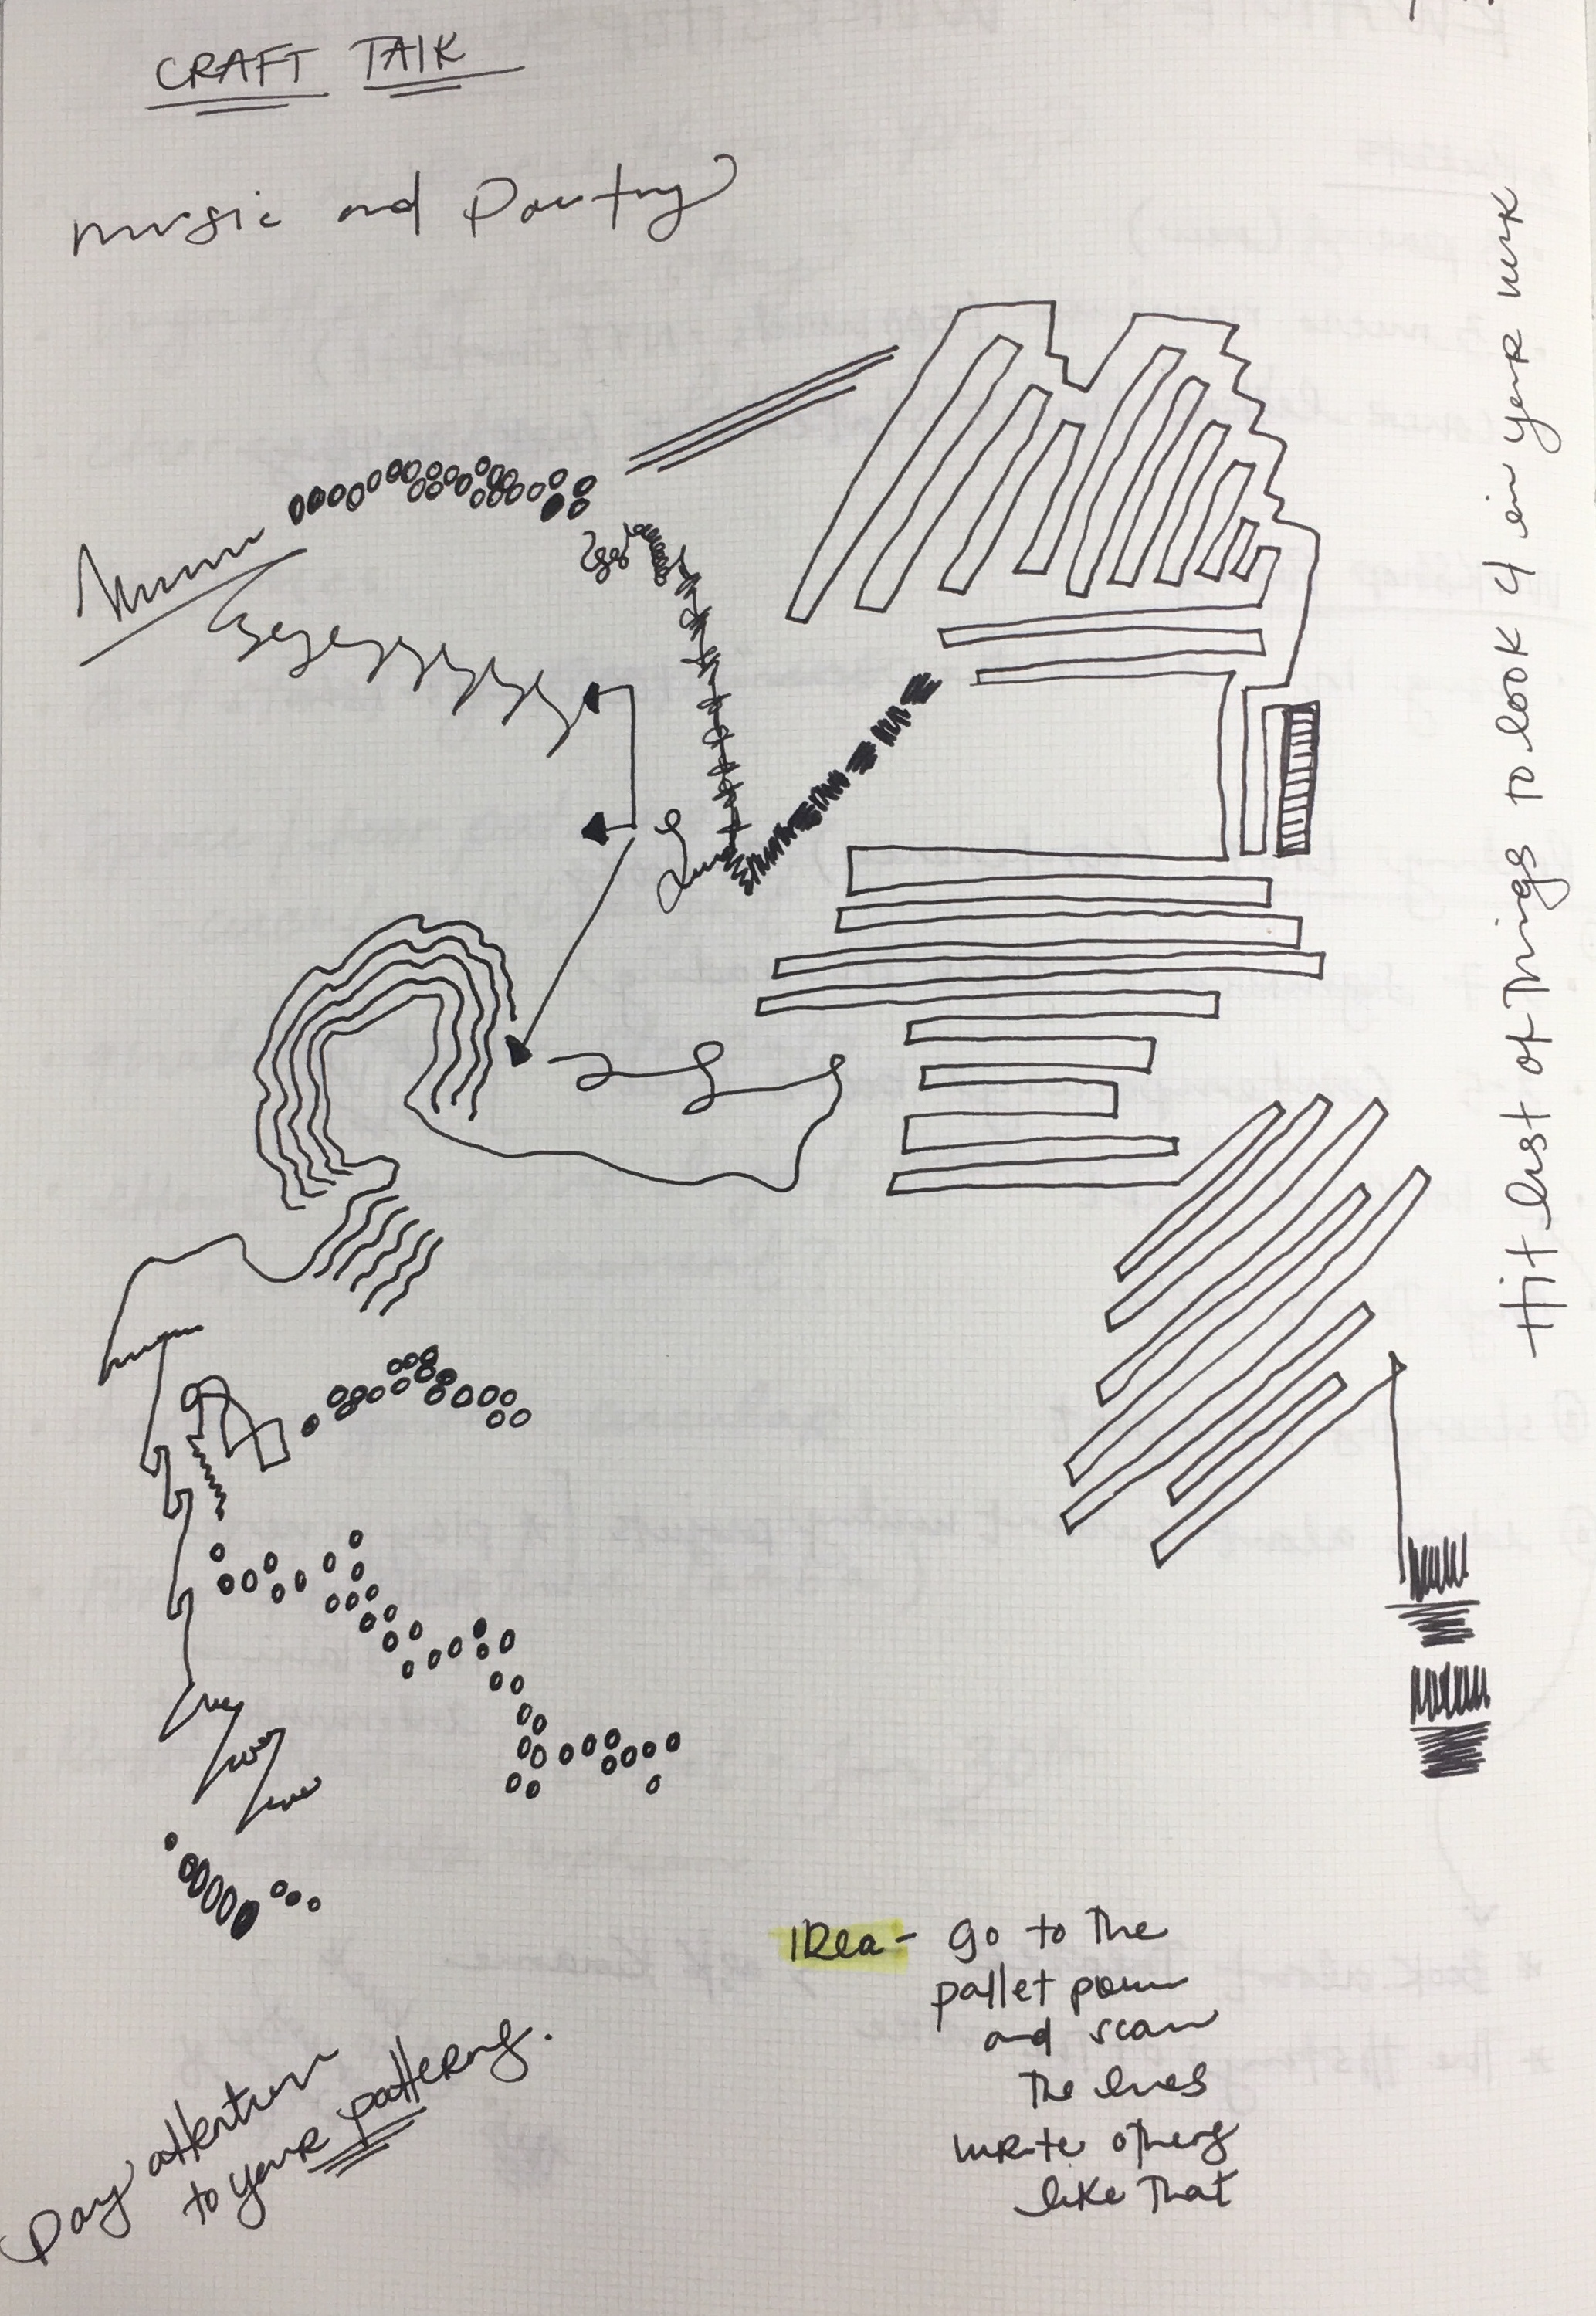 CRAFT TALK
music and Poetry
Hit list of Things to look 4 in your work
IDea - go to the
pallet poem
and scan
The lines
write others
like That
Pay attention
to your patterns.